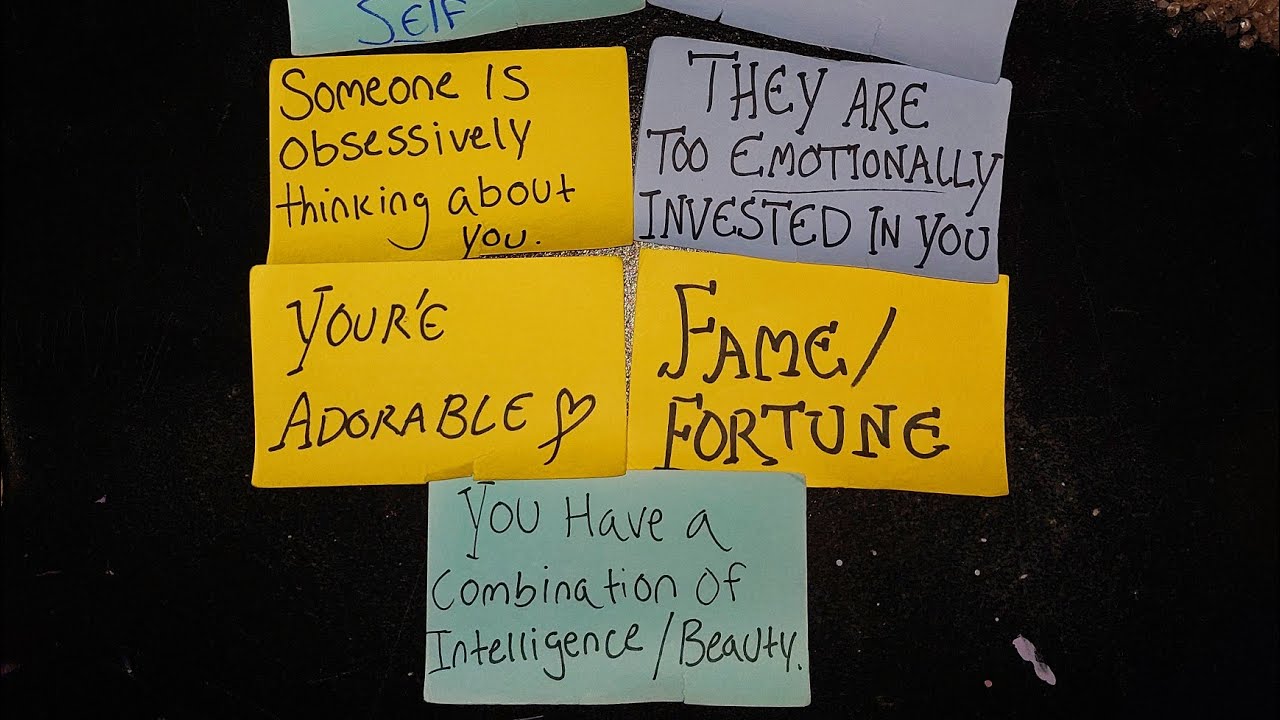 SELF
Someone IS
obsessively
thinking about
you.
THEY ARE
TOO EMOTIONALLY
INVESTED IN YOU
YOUR'E
ADORABLE
FAME/
FORTUNE
You Have a
Combination Of
Intelligence/Beauty.